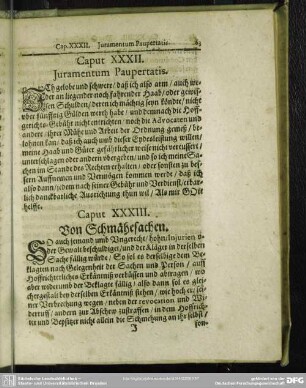 Cap. XXXII. Juramentum Paupertatis. 63
Caput XXXII.
Juramentum Paupertatis.
ICh gelobe und schwere / daß ich also arm / auch we-
der an liegender noch fahrender Haab / oder gewis-
sen Schulden / deren ich mächtig seyn könde / nicht
uber fünffzig Gülden werth habe / und demnach die Hoff-
gerichts-Gebühr nicht entrichten / noch die Advocaten und
andere ihrer Mühe und Arbeit der Ordnung gemeß / be-
lohnen kan / daß ich auch umb dieser Eydesleistung willen /
meine Haab und Güter gefährlicher weise nicht vereussert /
unterschlagen oder andern vbergeben / und so ich meine Sa-
chen im Stande des Rechten erhalten / oder sonsten zu bes-
sern Auffnemen und Vermögen kommen werde / daß ich
also dann / jedem nach seiner Gebühr und Verdienst / erbar-
lich danckbarliche Außrichtung thun wil / Als mir GOtt
helffe.
Caput XXXIII.
Von Schmähesachen.
SO auch jemand umb Ungerecht / hohn / Injurien u
der Gewalt beschuldiget / und der Kläger in derselben
Sache fällig würde / So sol er derselbige dem Be-
klagten nach Gelegenheit der Sachen und Person / auff
Hoffrichterlichen Erkäntniß verbüssen und abtragen / wo
aber widerumb der Beklagte fällig / also dann sol er glei-
chergestalt bey derselben Erkäntniß stehen / wie hoch er / sei-
ner Verbrechung wegen / neben der revocation und Wi-
derruff / andern zur Abschew zustraffen / in dem Hoffrich-
ter und Beysitzer nicht allein die Schmehung an ihr selbst /
J son-